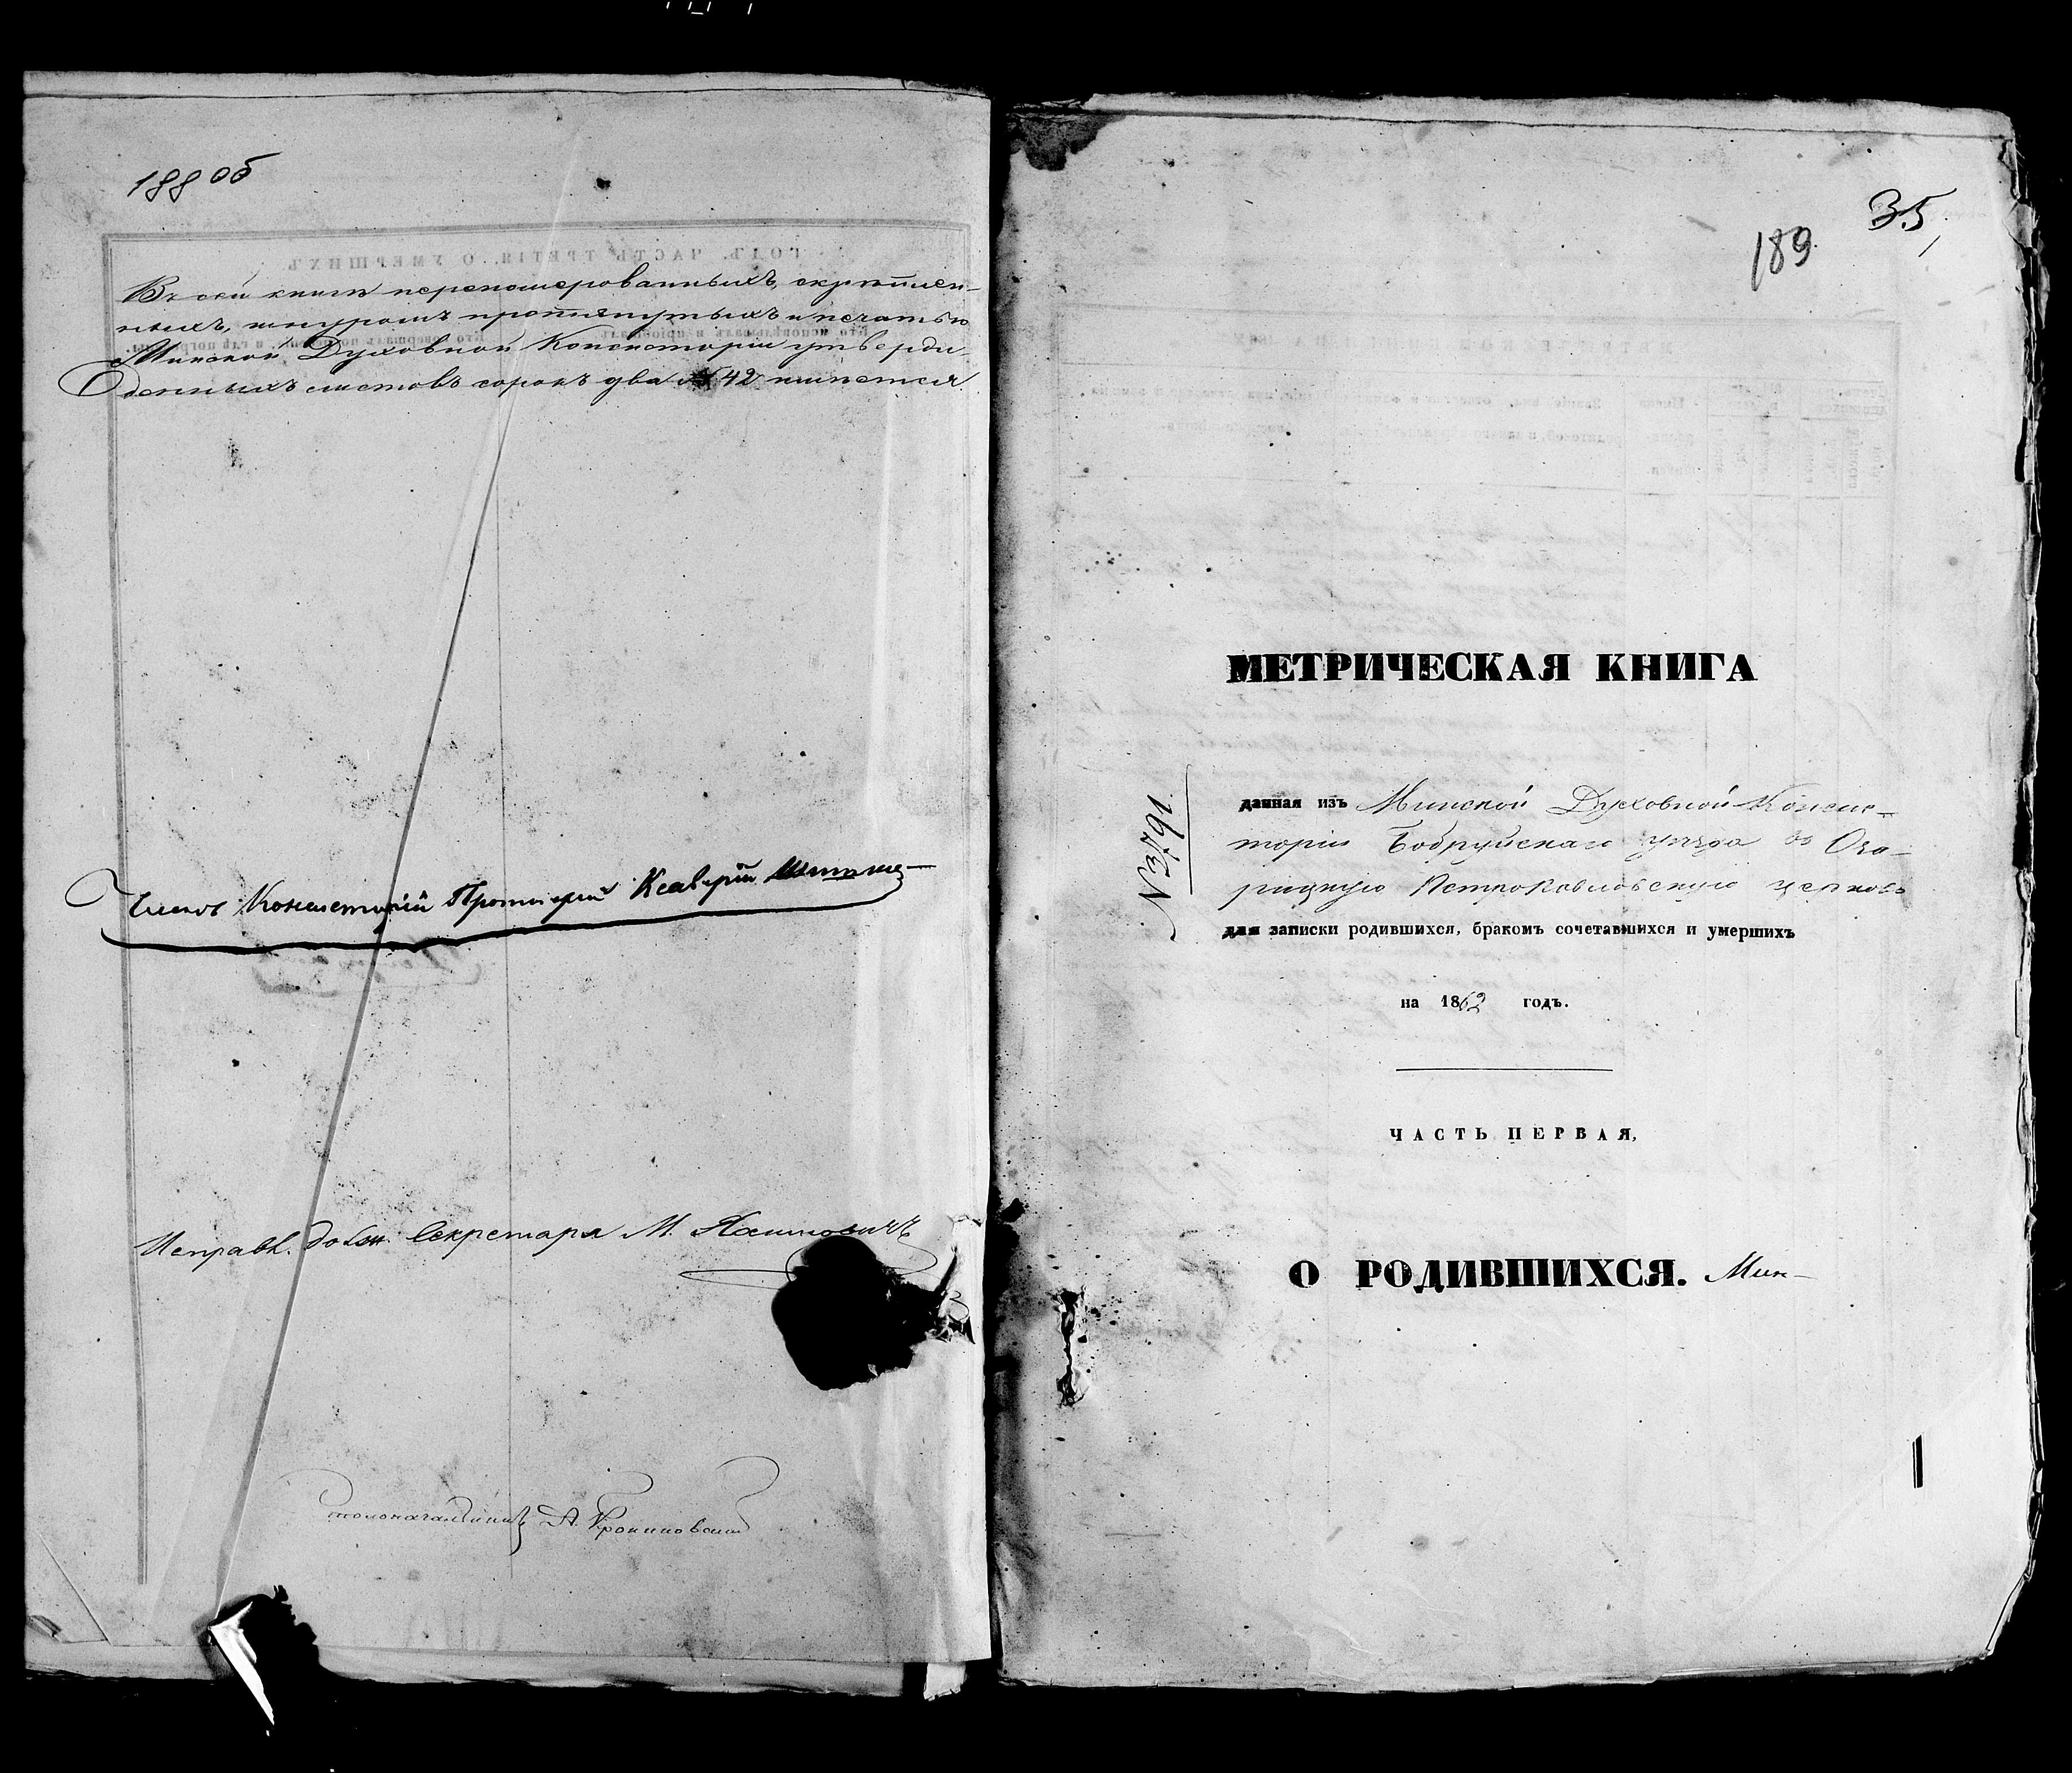 188 об
Въ сей книгѣ перенумерованныхъ, скрѣплен-
ныхъ, шнуромъ протянутыхъ и печатью
Минской Духовной Консисторіи утверж-
денныхъ листовъ сорокъ два № 42 имѣется.
Членъ Консисторіи Протоіерей Ксаверій
Исправл. должн. Секретаря М.
Столоначальникъ А.
35
189
МЕТРИЧЕСКАЯ КНИГА
№ 3791.
данная изъ Минской Духовной Консис-
торіи Бобруйскаго уѣзда въ Оза-
рицкую Петропавловскую церковь
для записки родившихся, бракомъ сочетавшихся и умершихъ
на 1862 годъ.
ЧАСТЬ ПЕРВАЯ,
О РОДИВШИХСЯ. Мин-